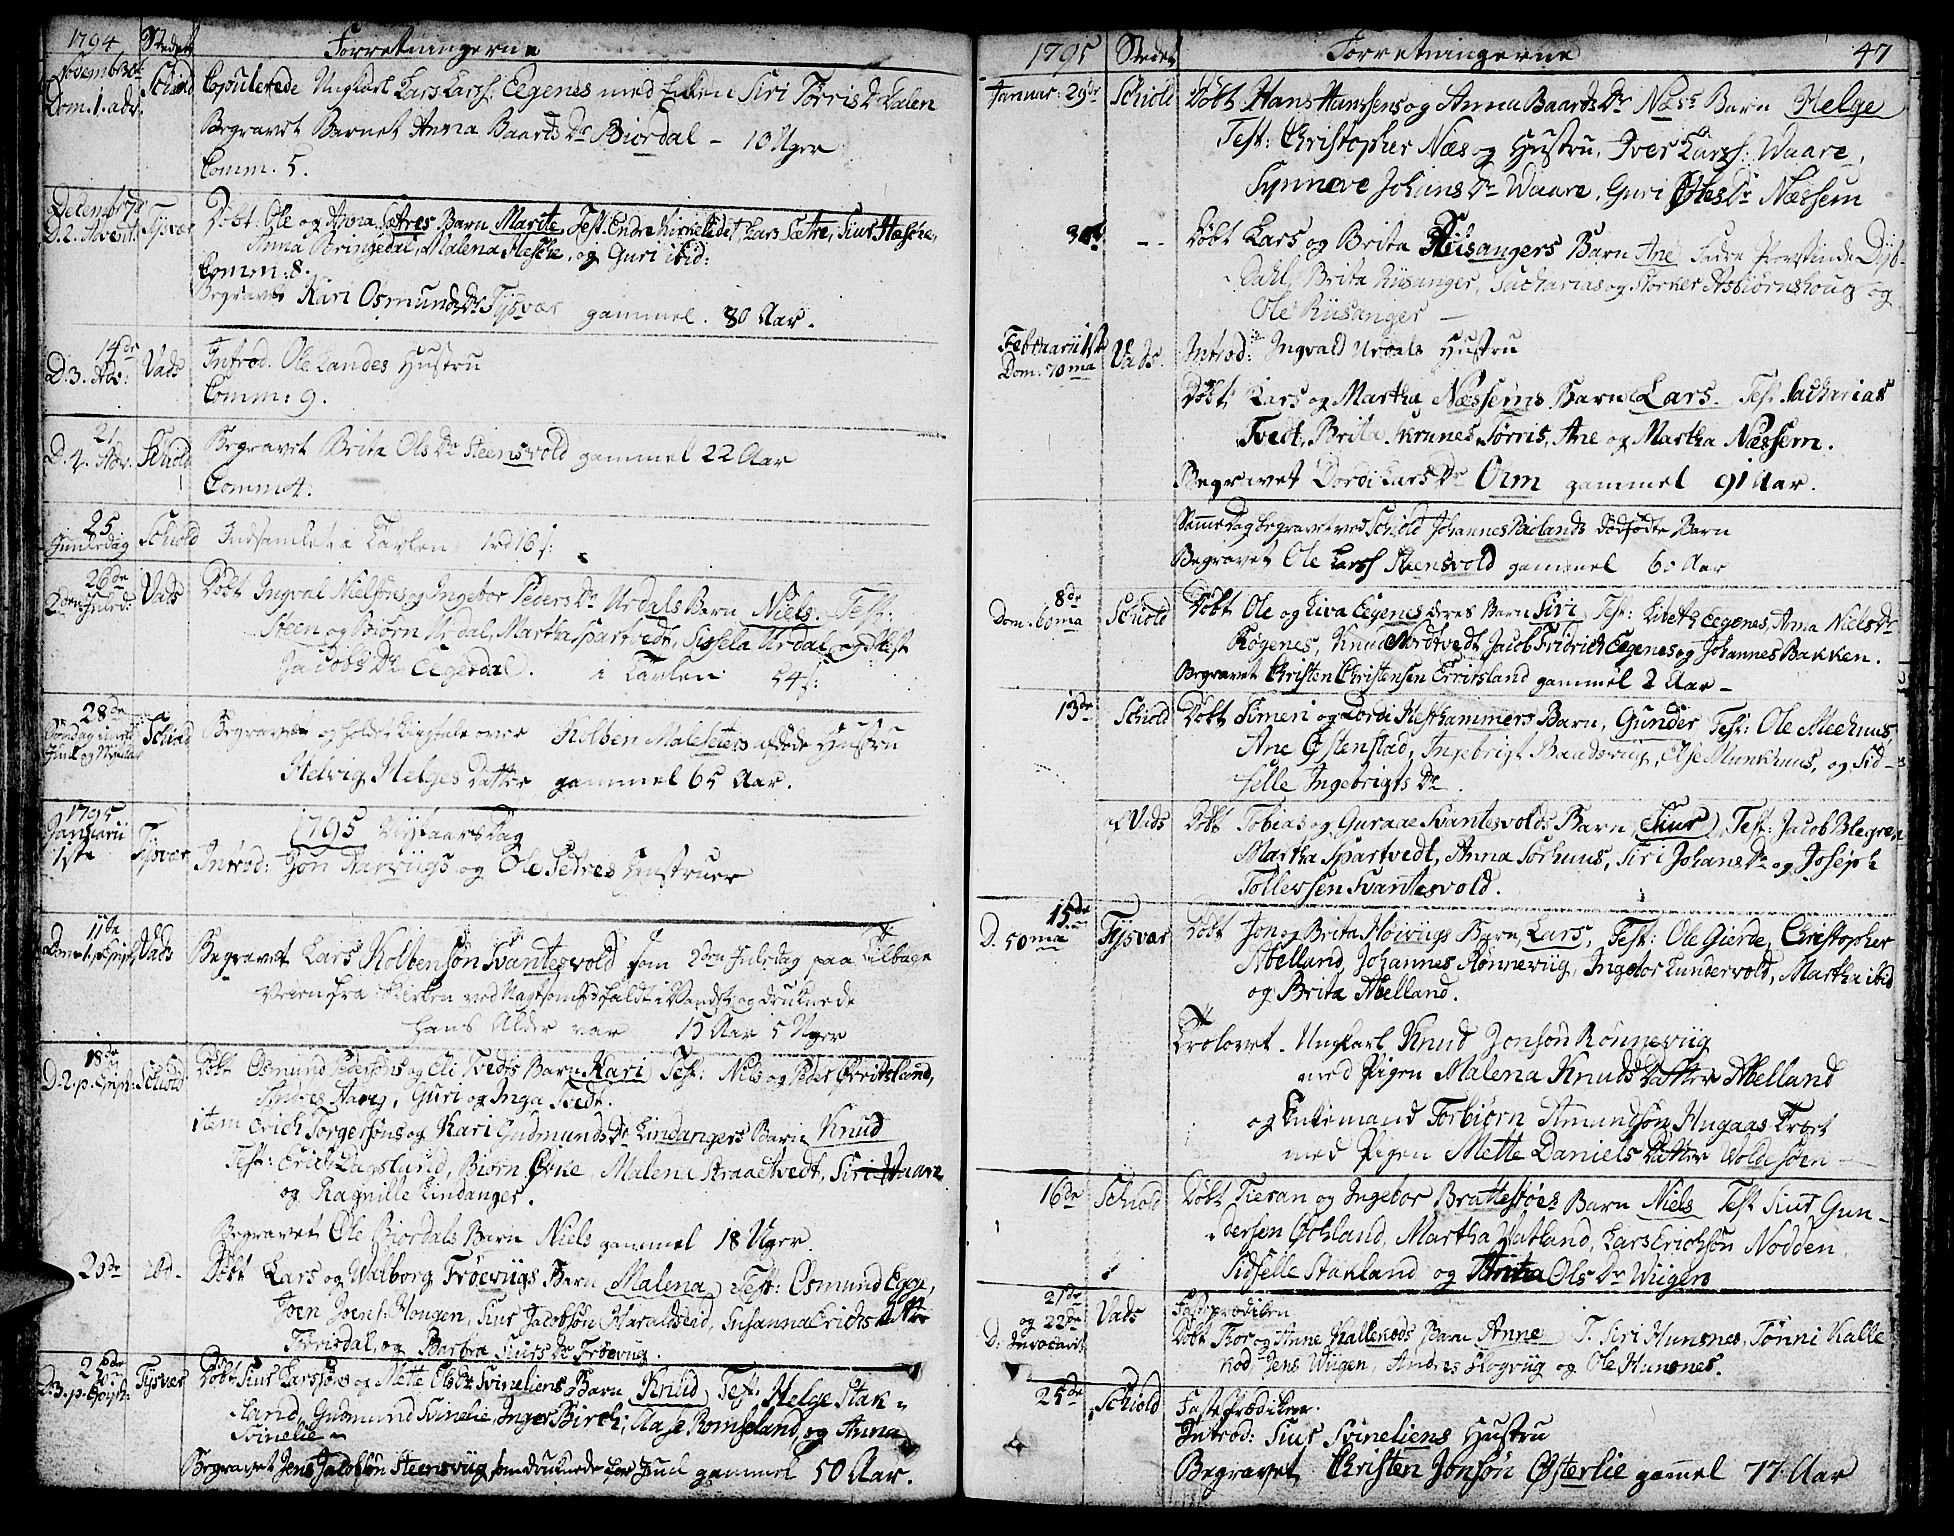 1794 Stedet Forretningerne
Novembr 30te Dom. 1. adv. Schiold Copulerede Ungkarl Lars Larss: Eegenes med Enken Siri Torris Dr Dalen
Begravet Barnet Anna Baards Dr Biordal - 10 Uger
Comm. 5.
Decembr 7de D. 2. Advent Tysvær Døbt Ole og Anna Sætres Barn Marite, Test. Endre Kirkeledet Lars Sætre, Siur Hesche,
Anna Bringedal, Malena Hesche, og Guri ibid:
Comm: 8.
Begravet Kari Osmunds Dr Tysvær gammel. 80 Aar.
14de D. 3. Adv: Vads Introd. Ole Landes Hustru
Comm: 9.
21 D. 4. Adv. Schiold Begravet Brita Ols Dr Steensvold gammel 22 Aar
Comm 4.
25 Juuledag Schiold Indsamlet i Tavlen 1 rd 16 s:
26de 2den Juled: Vads Døbt Ingval Nielsøns og Ingebor Peders Dr Urdals Barn Niels. Test:
Steen og Biørn Urdal, Martha Spartvedt, Sissela Urdal og
Jacobs Dr Eegerdal. i Tavlen 24 s:
28de Søndag imell: Juul og Nytaar Schiold Begravet og holdt Liigtale over Kolben Maleseters afdøde Hustru
Helvig Helges Datter gammel 65 Aar.
1795 Januarii 1ste Tysvær 1795 Nytaarsdag
Introd: Jon Narviigs og Ole Setres Hustruer
11te Dom. 1. p. Epiph. Vads Begravet Lars Kolbensøn Svantesvold som 2den Juledag paa Tilbage
Veien fra Kirken ved faldt i Vandet og druknede
hans Alder var 15 Aar 5 Uger
18de D. 2. p. Epiph. Schiold Døbt Osmund Pedersøns og Eli Tvedts Barn Kari Test: Niels og Peder Ørritsland,
Guri og Inga Tvedt.
item Erich Torgersøns og Kari Gudmunds Dr Lindangers Barn Knud
Test: Erich Dagslund, Biørn Øvne, Malena Straaetvedt, Siri Vaare
og Ragnille Lindanger.
Begravet Ole Biordals Barn Niels gammel 18 Uger.
20de Døbt Lars og Walborg Frøeviigs Barn Malena Test: Osmund Egge,
Joen Joens: Hougen, Siur Jacobsøn Haraldseid, Susanna Erichs Datter
og Barbra Siurs Dr Frøevig.
25de D. 3. p. Epiph. Tysvær Døbt Siur Larssøns og Mette Ols Dr Svineliens Barn Knud Test: Helge Stak-
land, Gudmund Svinelie, Inger Birch, Aase Romseland, og Anna
Svinelie
Begravet Jens Jacobsøn Steensviig, som druknede før Juul gammel 50 Aar.
1795 Stedet Forretningerne 47
Januar: 29de Schiold Døbt Hans Hanssens og Anna Baards Dr Næs's Barn Helge
Test: Christopher Næs og Hustru, Iver Larss: Waare,
Synneve Johans Dr Waare, Guri Oles Dr Næssem
30te -- Døbt Lars og Brita Riisangers Barn Ane Fadre Dyb-
Dahl, Brita Riisanger, Sacharias og Storker Asbiørnshoug og
Ole Riisanger
Februarii 1ste Dom. 70ma Vads. Introd: Ingvald Urdals Hustru
Døbt Lars og Martha Næssems Barn Lars. Test. Sacharias
Tvedt, Brita Krunes, Torris, Ane og Martha Næssem.
Begravet Dordi Lars Dr Orm gammel 91 Aar.
Samme dag begravet ved Schiold Johannes dødfødte Barn
Begravet Ole Larss Steensvold gammel 60 Aar
8de Dom. 60ma Schiold Døbt Ole og Liva Eegenes deres Barn Siri Test: Livet Eegenes, Anna Niels Dr
Røgenes, Knud Jacob Fridrich Eegenes og Johannes Bakken.
Begravet Christen Christensen Erritsland gammel 2 Aar -
13de Schiold Døbt Simeri og Dordi Hesthammers Barn, Gunder Test: Ole Meehuus,
Ane Østenstad, Ingebrigt Baadsviig, Else Munkhuus, og Sid-
selle Ingebrigts Dr.
Vads Døbt Tobias og Guraae Svantesvolds Barn Siur, Test: Jacob Blegren
Martha Spartvedt, Anna Sørhuus, Siri Johans Dr og Joseph
Tollevsen Svantesvold.
15de D. 50ma Tysvær Døbt Jon og Brita Høiviigs Barn Lars, Test: Ole Gierde, Christopher
Abelland, Johannes Rønneviig, Ingebor Lundervold, Martha ibid
og Brita Abelland.
Trolovet. Ungkarl Knud Jonsøn Rønneviig
med Pigen Malena Knuds Datter Abelland
og Enkemand Torbiørn Amundsøn Hugaas
med Pigen Mette Daniels Datter Woldesøen
16de Schiold Døbt Tieran og Ingebor Brattestøes Barn Niels Test Siur Gun-
dersen Ochland, Martha Vatland, Lars Erichsøn Nodden
Sidselle Stakland og Anna Ols Dr Wiigen
21de og 22de D: Invocavit Vads Fasteprædiken
Døbt Thor og Anne Kallekods Barn Anne T. Siri Hunsnes, Tønni Kalle
kod, Jens Wiigen, Andres Skogviig og Ole Hunsnes.
25de Schiold Fasteprædiken.
Introd: Siur Svineliens Hustru
Begravet Christen Jonsøn Østerlie gamel 77 Aar